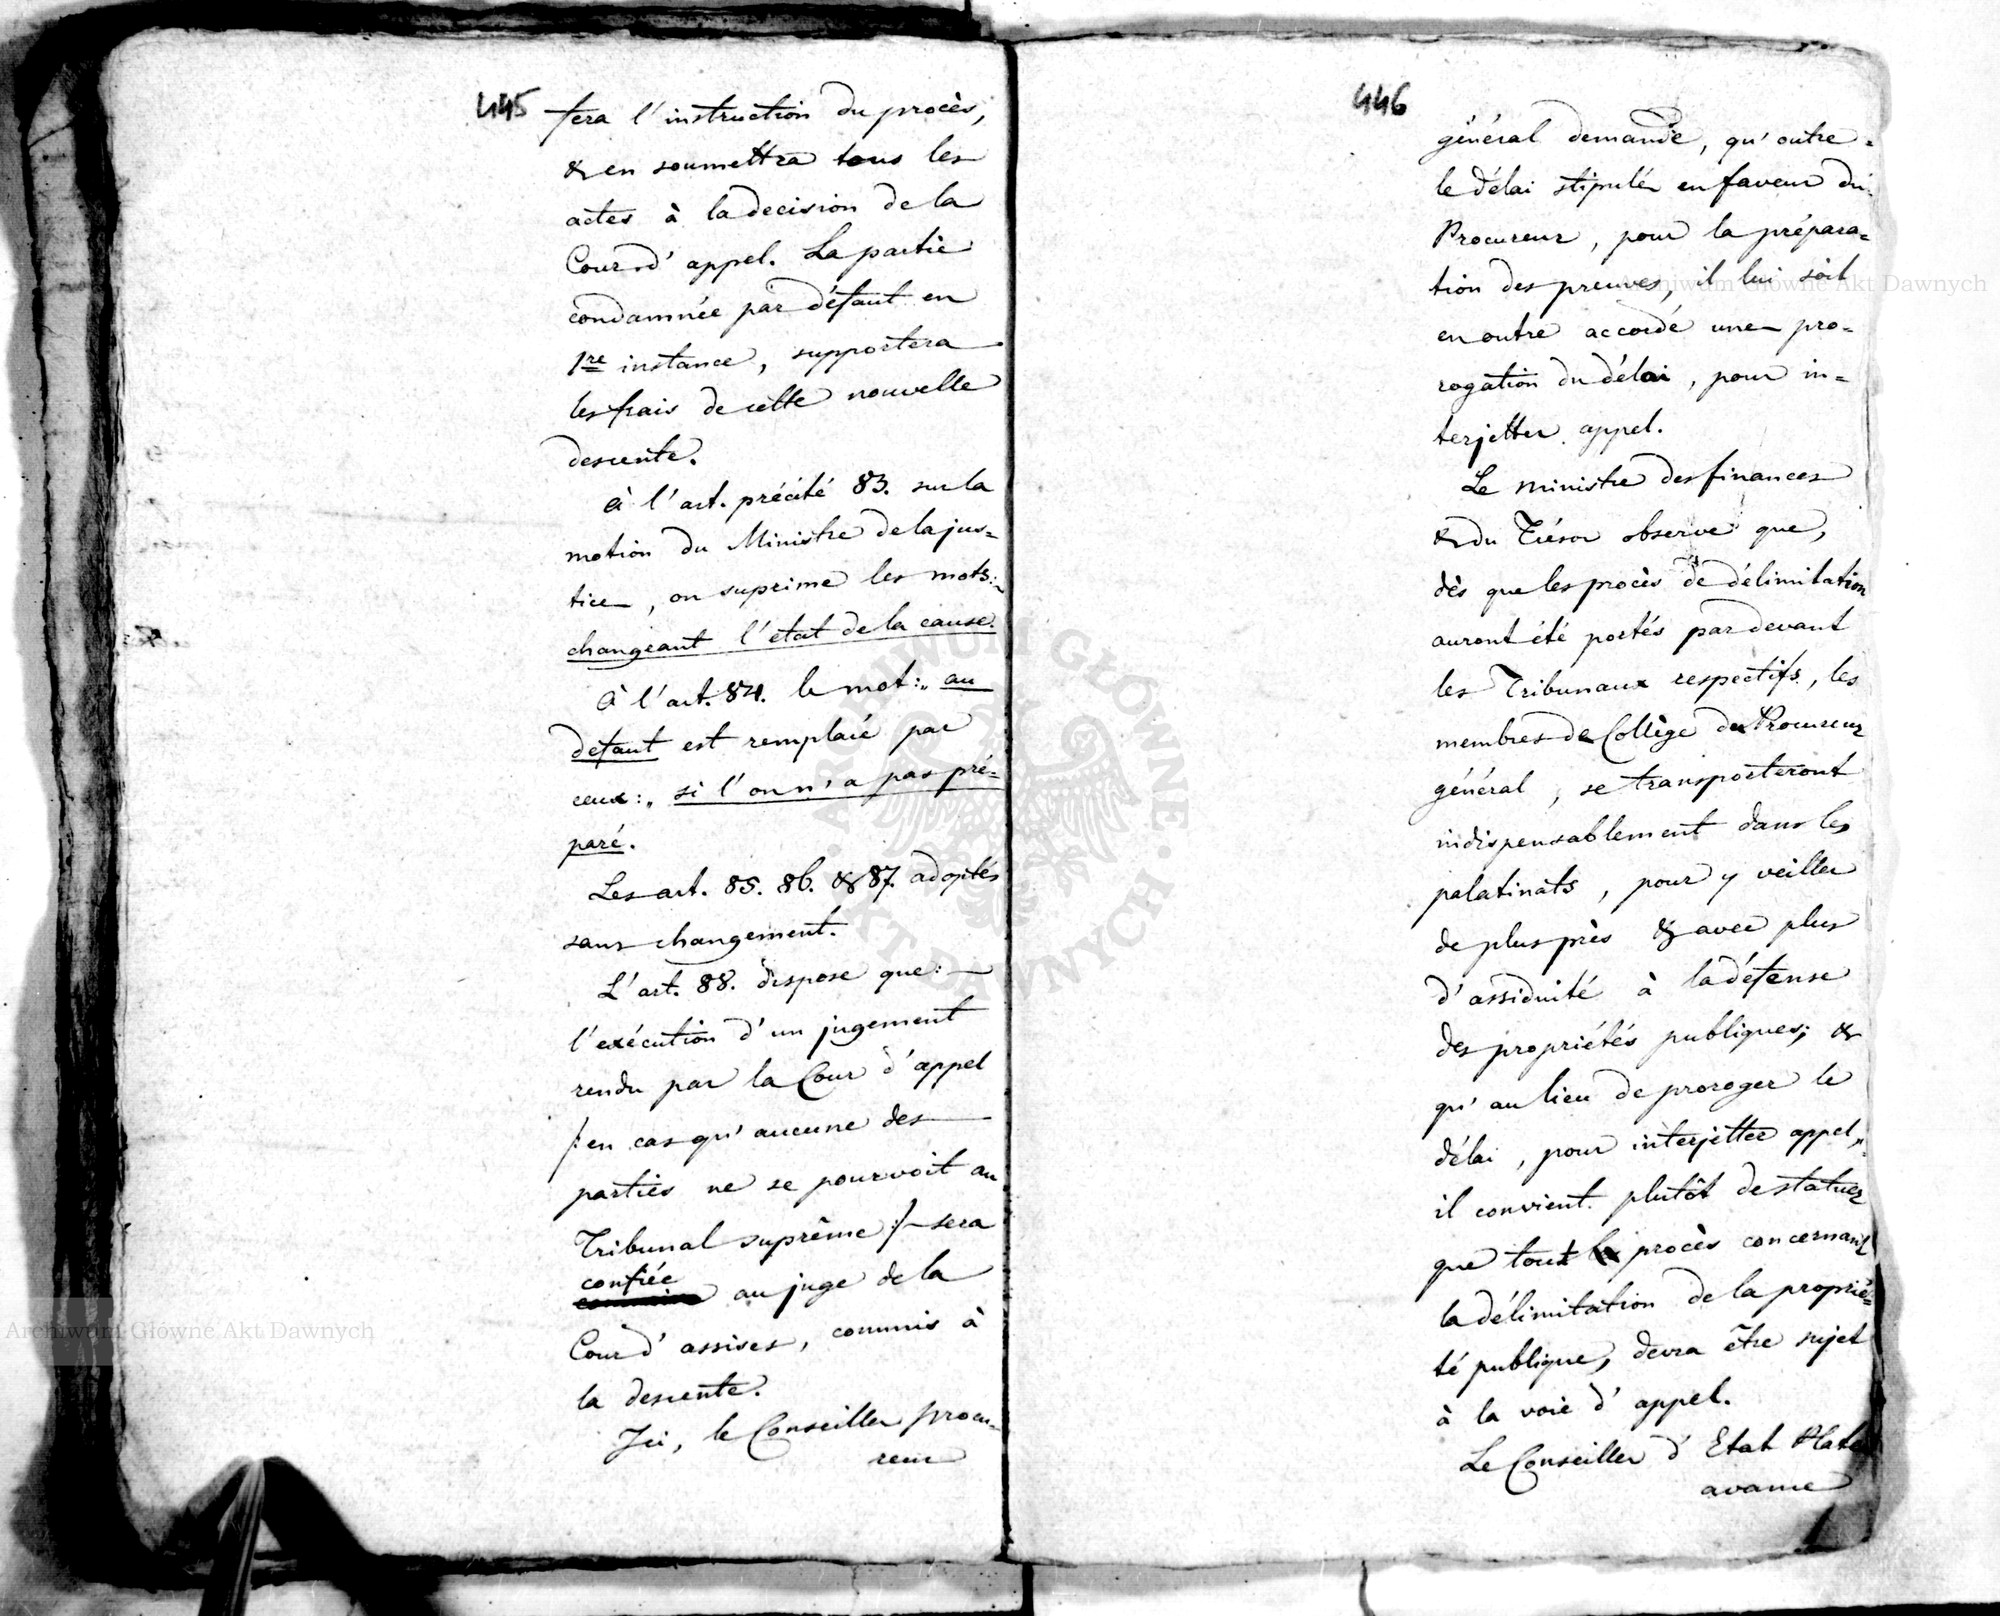 445
fera l'instruction du procès,
& en soumettra tous les
actes à la decision de la
Cour d'appel. La partie
condamnée par défaut en
1re instance, supportera
les frais de cette nouvelle
descente.
à l'art. précité 83. sur la
motion du Ministre de la jus=
tice, on suprime les mots:
changeant l'état de la cause.
à l'art. 84. le mot: „ au
defaut est remplacé par
ceux: „ si l'on n'a pas pré=
paré.
Les art. 85. 86. & 87. adoptés
sans changement.
L'art. 88. dispose que: —
l'exécution d'un jugement
rendu par la Cour d'appel
/: en cas qu'aucune des
parties ne se pourvoit au
Tribunal suprême :/ sera
confiée
au juge de la
Cour d'assises, commis à
la descente.
Ici, le Conseiller procu=
reur
446
général demande, qu'outre
le délai stipulé en faveur du
Procureur, pour la prépara=
tion des preuves, il lui soit
en outre accordé une pro=
rogation du délai, pour in=
terjetter appel.
Le ministre des finances
& du Trésor observe que,
dès que les procès de délimitation
auront été portés par devant
les Tribunaux respectifs, les
membres de Collège du Procureur
général, se transporteront
indispensablement dans les
palatinats, pour y veiller
de plus près & avec plus
d'assiduité à la défense
des propriétés publiques; &
qu'au lieu de proroger le
délai, pour interjetter appel,
il convient plutôt de statuer
que tout procès concernant
la délimitation de la proprié=
té publique, devra être sujet
à la voie d'appel.
Le Conseiller d'Etat Plater
avance
Archiwum Główne Akt Dawnych
Archiwum Główne Akt Dawnych
ARCHIWUM GŁÓWNE AKT DAWNYCH